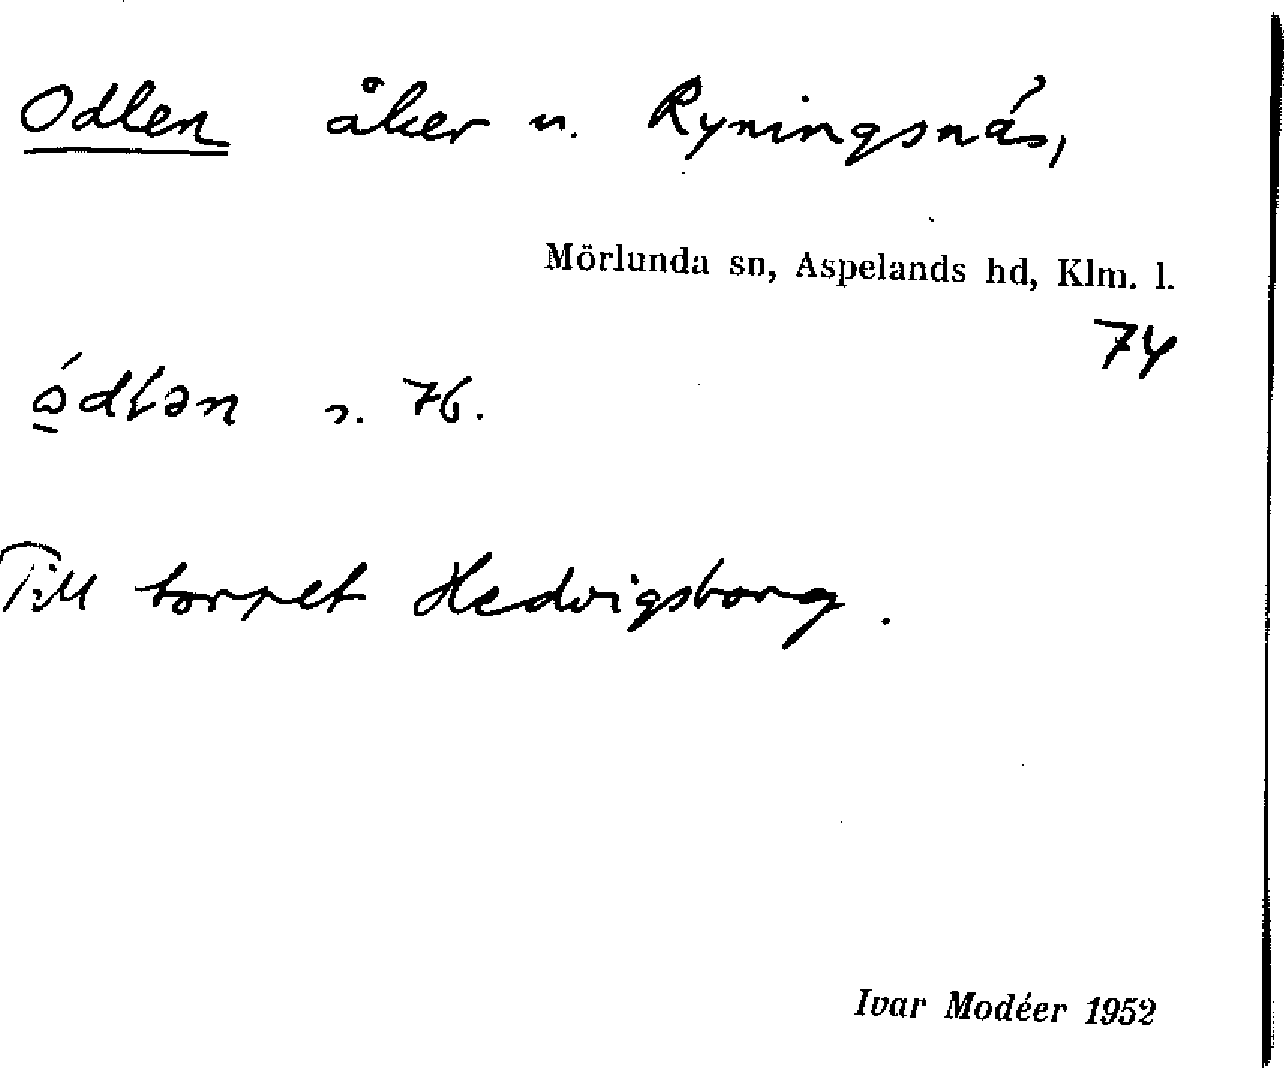 Odlen åker u. Ryningsnäs,
Mörlunda sn, Aspelands hd, Klm. l.
74
s. 76.
Till torpet Hedvigsborg.
Ivar Modéer 1952